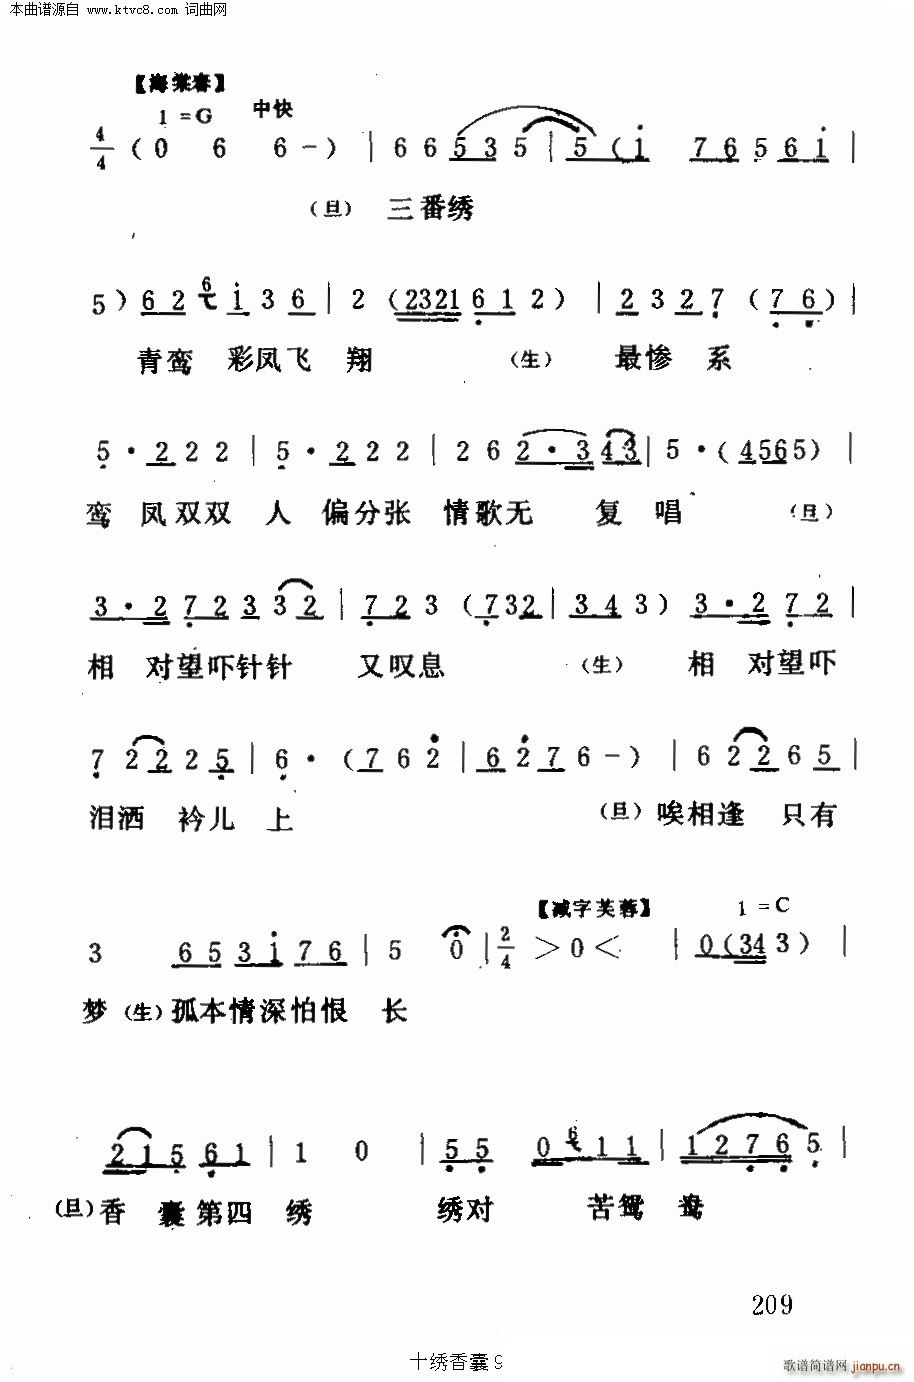 本曲谱源自 www.ktvc8.com 词曲网
【海棠春】
1=G 中快
4/4 ( 0 6 6 - ) | 6 6 5 3 5 | 5 ( i 7 6 5 6 i |
(旦) 三番绣
5 ) 6 2 6 i 3 6 | 2 ( 2321 6 1 2 ) | 2 3 2 7 ( 7 6 ) |
青鸾 彩凤飞 翔 (生) 最惨 系
5 · 2 2 2 | 5 · 2 2 2 | 2 6 2 · 3 4 3 | 5 · ( 4565 ) |
鸾 凤双双 人 偏分张 情歌无 复 唱 (旦)
3 · 2 7 2 3 3 2 | 7 2 3 ( 7 3 2 | 3 4 3 ) 3 · 2 7 2 |
相 对望吓针针 又叹息 (生) 相 对望吓
7 2 2 2 5 | 6 · ( 7 6 2 | 6 2 7 6 - ) | 6 2 2 6 5 |
泪洒 衿儿 上 (旦) 唉相逢 只有
【减字芙蓉】 1=C
3 6 5 3 i 7 6 | 5 0 | 2/4 > 0 < | 0 ( 34 3 ) |
梦 (生) 孤本情深怕恨 长
2 1 5 6 1 | 1 0 | 5 5 0 6 1 1 | 1 2 7 6 5 |
(旦) 香 囊第四 绣 绣对 苦鸳 鸯
209
十绣香囊 9
歌谱简谱网
jianpu.cn